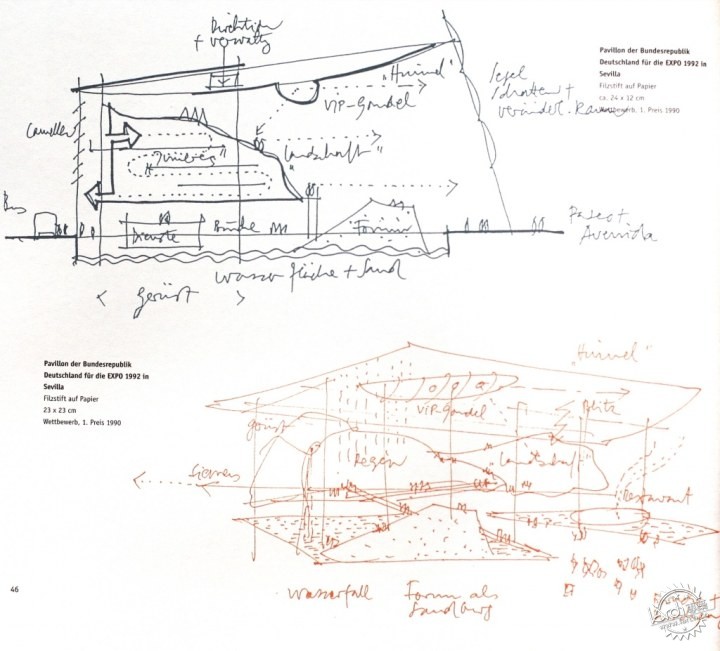 Direktion
+ Verwaltg
"Himmel"
VIP-Gondel
Segel
Schatten +
Pavillon der Bundesrepublik
Deutschland für die EXPO 1992 in
Sevilla
Filzstift auf Papier
ca. 24 x 32 cm
Wettbewerb, 1. Preis 1990
"Landschaft"
Bus
Dienste
Bühne
Forum
Paseo +
Avenida
Wasserfläche + Sand
< Gerüst >
Pavillon der Bundesrepublik
Deutschland für die EXPO 1992 in
Sevilla
Filzstift auf Papier
23 x 23 cm
Wettbewerb, 1. Preis 1990
"Himmel"
VIP-Gondel
Blitz
Gerüst
Regen
"Landschaft"
Siemens
Restaurant
46
Wasserfall
Forum als
Sandburg